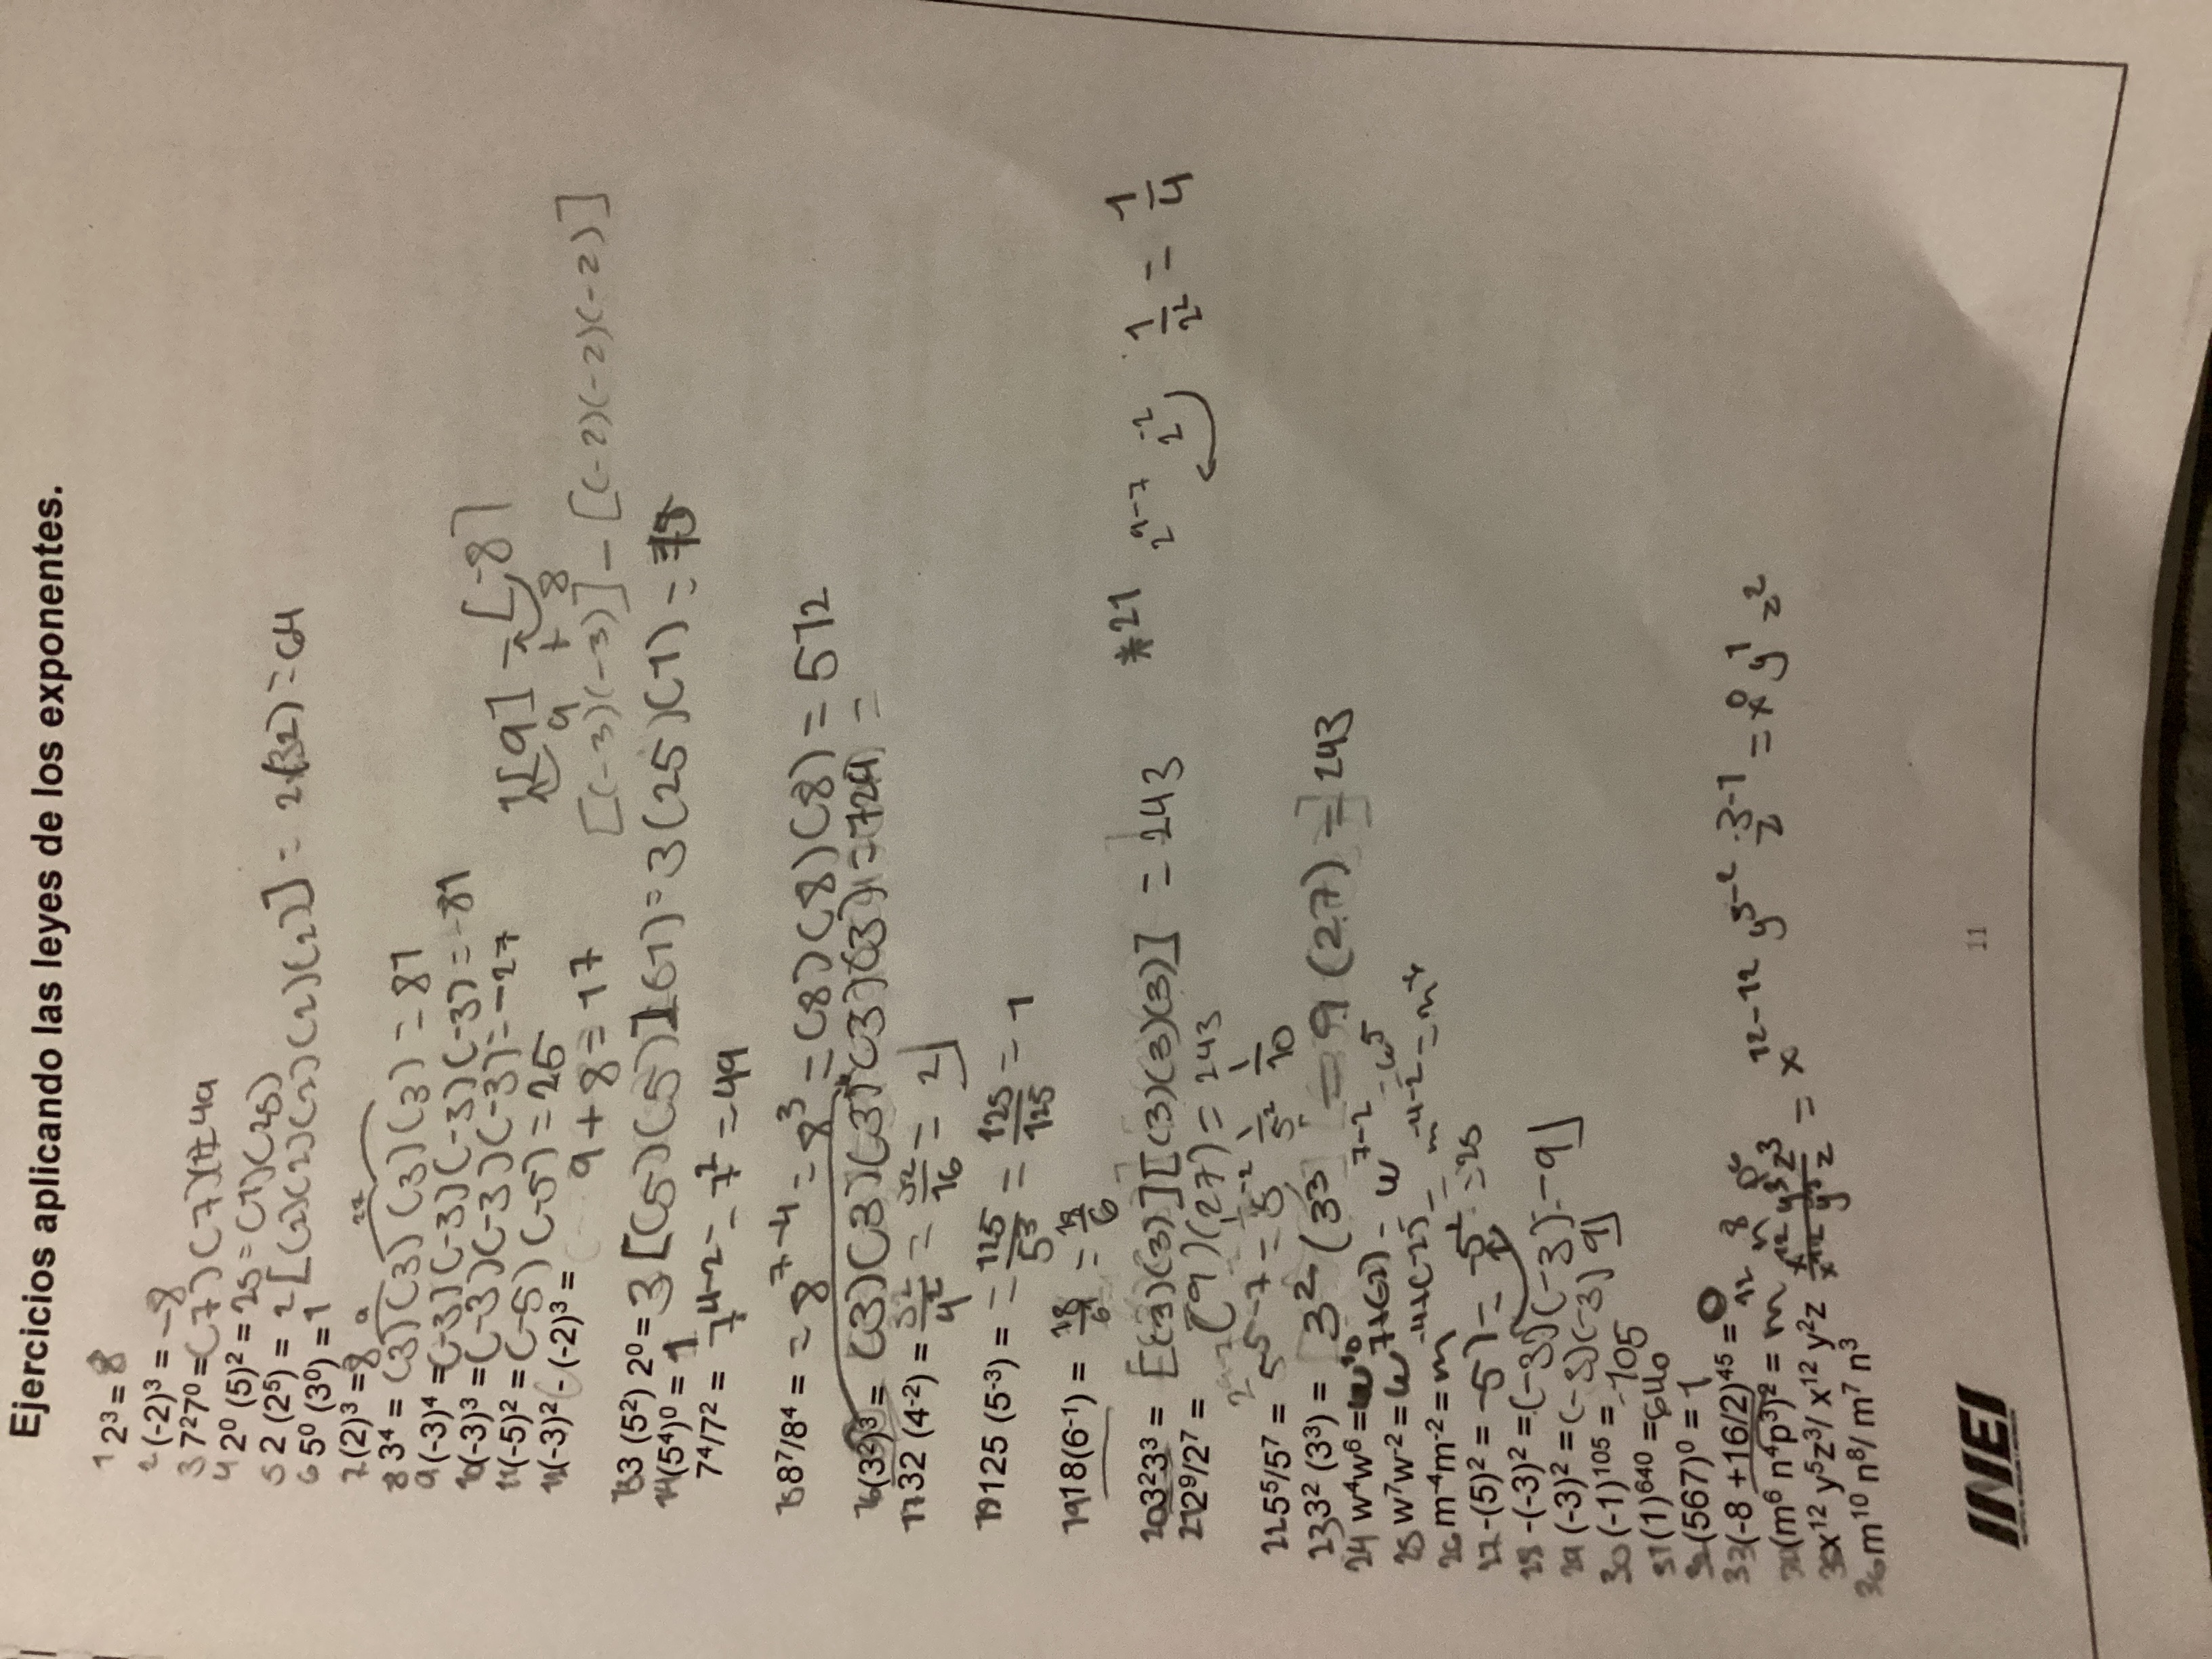 Ejercicios aplicando las leyes de los exponentes.
1 2³ = 8
2 (-2)³ = -8
3 7²7⁰ = (7)(7)1 = 49
4 2⁰ (5)² = 25 = (1)(25)
5 2 (2⁵) = 2[(2)(2)(2)(2)(2)] = 2(32) = 64
6 5⁰ (3⁰) = 1
7 (2)³ = 8
8 3⁴ = (3)(3)(3)(3) = 81
9 (-3)⁴ = (-3)(-3)(-3)(-3) = -81
10 (-3)³ = (-3)(-3)(-3) = -27
11 (-5)² = (-5)(-5) = 25
1[9] - [-8]
9 + 8
12 (-3)² - (-2)³ = 9 + 8 = 17
[(-3)(-3)] - [(-2)(-2)(-2)]
13 3 (5²) 2⁰ = 3[(5)(5)](1) = 3(25)(1) = 75
14 (5⁴)⁰ = 1
7⁴/7² = 7⁴⁻² = 7² = 49
15 8⁷/8⁴ = 8⁷⁻⁴ = 8³ = (8)(8)(8) = 512
16 (3²)³ = (3)(3)(3)(3)(3)(3) = 724 =
17 32 (4⁻²) = 32/4² = 32/16 = 2
19 125 (5⁻³) = 125/5³ = 125/125 = 1
19 18(6⁻¹) = 18/6¹ = 18/6
20 3²3³ = [(3)(3)][(3)(3)(3)] = 243
(9)(27) = 243
21 2⁹/2⁷ =
*21 2⁹⁻⁷ 2⁻² 1/2² = 1/4
22 5⁵/5⁷ = 5⁵⁻⁷ = 5⁻² 1/5² 1/10
23 3² (3³) = 3² (3³) = 9 (27) = 243
24 w⁴w⁶ = w¹⁰
25 w⁷w⁻² = w⁷⁺⁽⁻²⁾ = w⁷⁻² = w⁵
26 m⁻⁴m⁻² = m⁻⁴⁺⁽⁻²⁾ = m⁻⁴⁻² = m
27 -(5)² = -5) = -5² = 25
28 -(-3)² = (-3)(-3) = -9
29 (-3)² = (-3)(-3) 9
30 (-1)¹⁰⁵ = -105
31 (1)⁶⁴⁰ = 640
32 (567)⁰ = 1
33 (-8 + 16/2)⁴⁵ = 0
34 (m⁶ n⁴p³)² = m¹² n⁸ p⁶
35 x¹² y⁵z³/ x¹² y²z x¹² y⁵ z³ / x¹² y² z = x¹²⁻¹² y⁵⁻² z³⁻¹ = x⁰ y¹ z²
36 m¹⁰ n⁸/ m⁷ n³
INEI
11